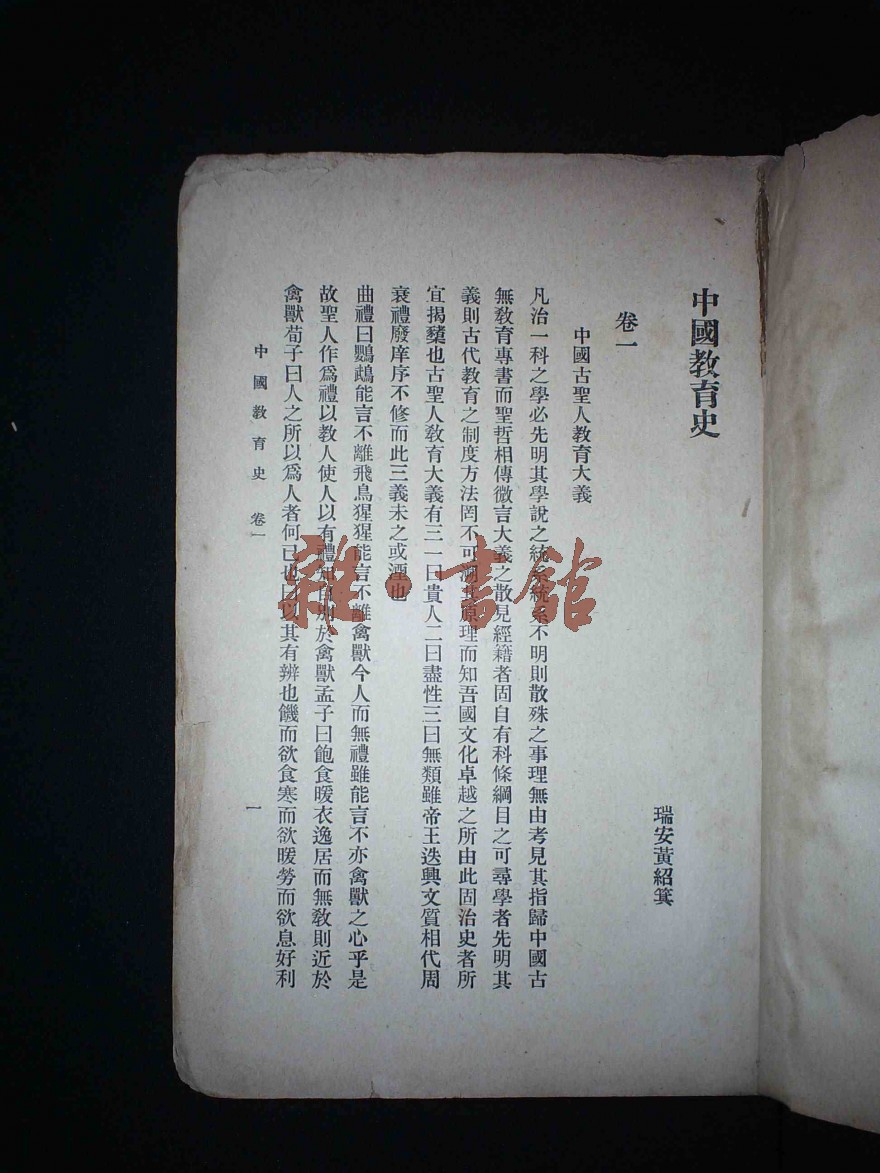 中國教育史
瑞安黃紹箕
卷一
中國古聖人教育大義
凡治一科之學必先明其學說之統系統系不明則散殊之事理無由考見其指歸中國古
無教育專書而聖哲相傳微言大義之散見經籍者固自有科條綱目之可尋學者先明其
義則古代教育之制度方法罔不可溯其原理而知吾國文化卓越之所由此固治史者所
宜揭櫫也古聖人教育大義有三一曰貴人二曰盡性三曰無類雖帝王迭興文質相代周
衰禮廢庠序不修而此三義未之或湮也
曲禮曰鸚鵡能言不離飛鳥猩猩能言不離禽獸今人而無禮雖能言不亦禽獸之心乎是
故聖人作爲禮以教人使人以有禮知自別於禽獸孟子曰飽食暖衣逸居而無教則近於
禽獸荀子曰人之所以爲人者何已也曰以其有辨也饑而欲食寒而欲暖勞而欲息好利
中國教育史 卷一
一
雜·書館